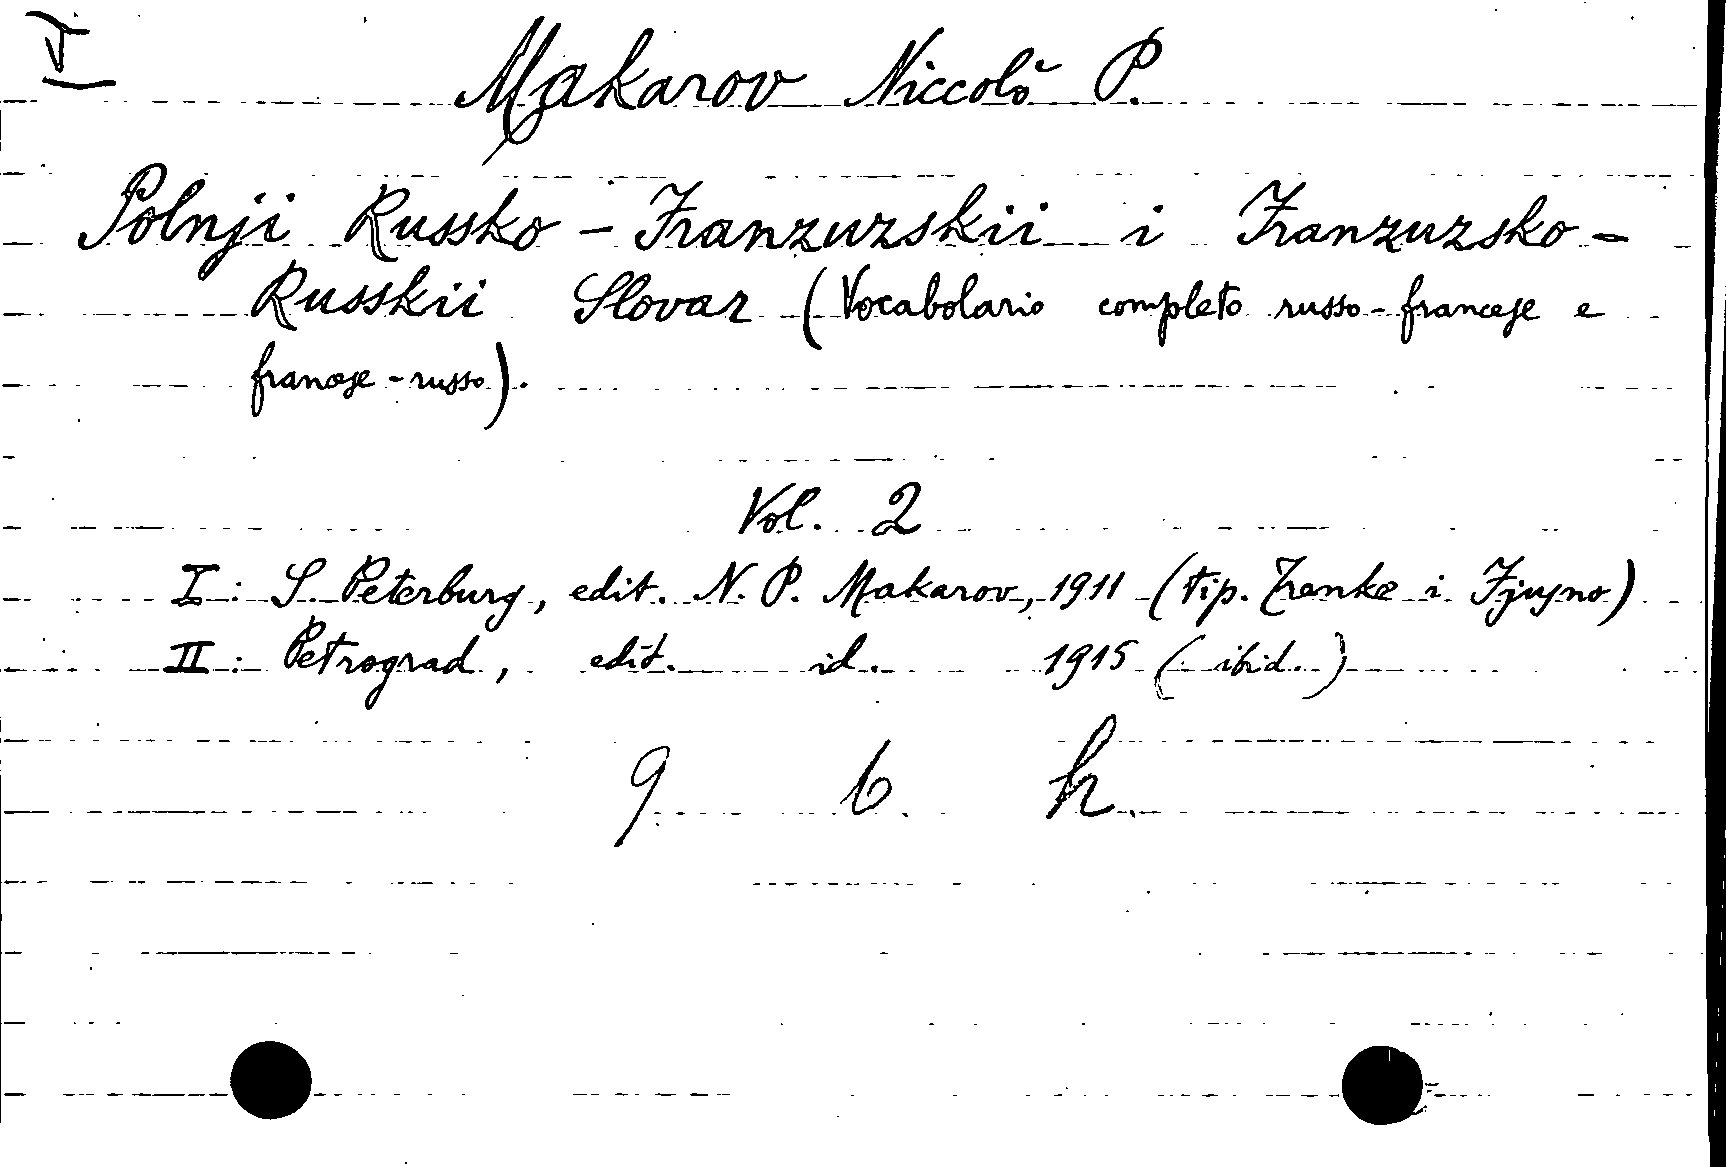 V
Makarov Niccolò P.
Polnji Russko - Franzuzskii i Franzuzsko -
Russkii Slovar (Vocabolario completo russo-francese e
francese-russo).
Vol. 2
I : S. Peterburg, edit. N. P. Makarov, 1911 (tip. Trenke i Fjusno)
II : Petrograd, edit. id. 1915 (ibid.)
9 6 h